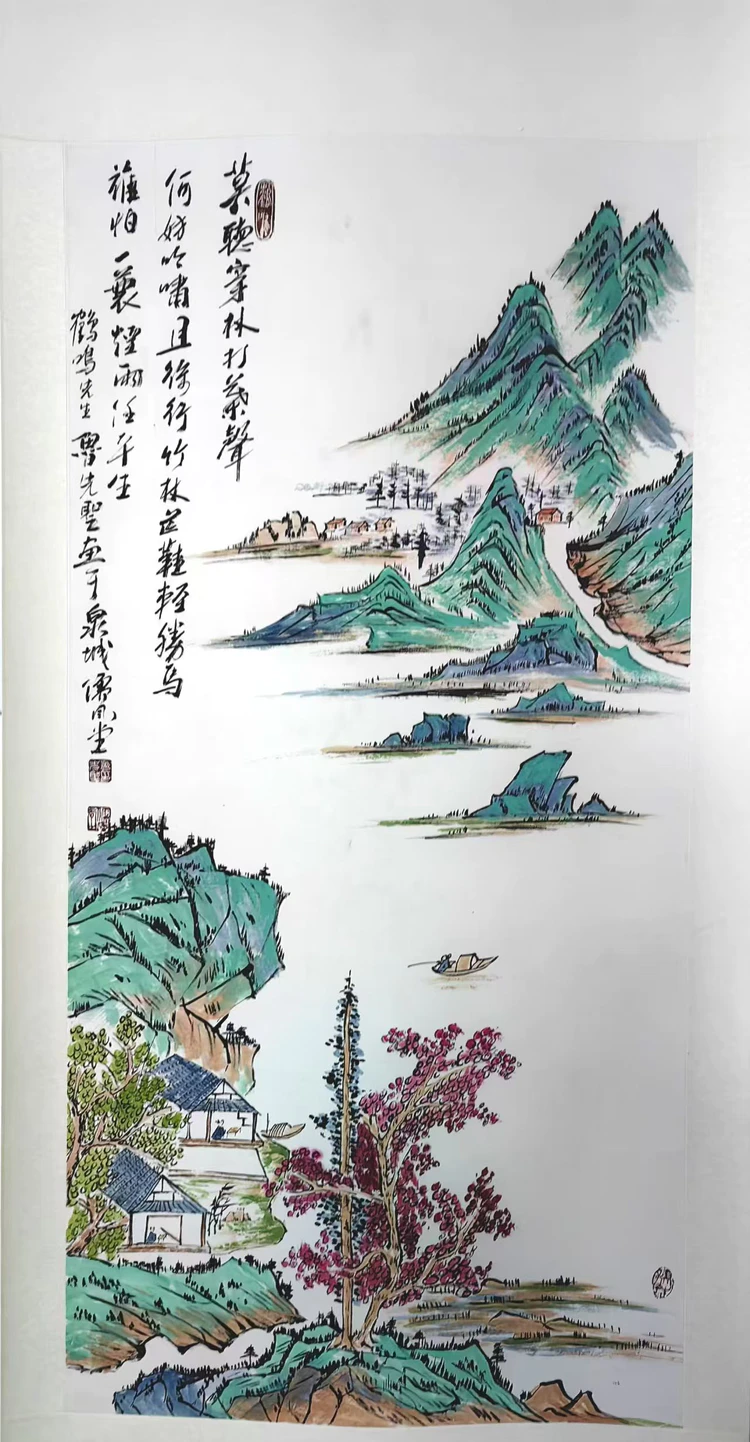 莫聽穿林打葉聲
何妨吟嘯且徐行竹杖芒鞋輕勝馬
誰怕一蓑煙雨任平生
鶴鳴先生 魯先聖画于泉城儒风堂